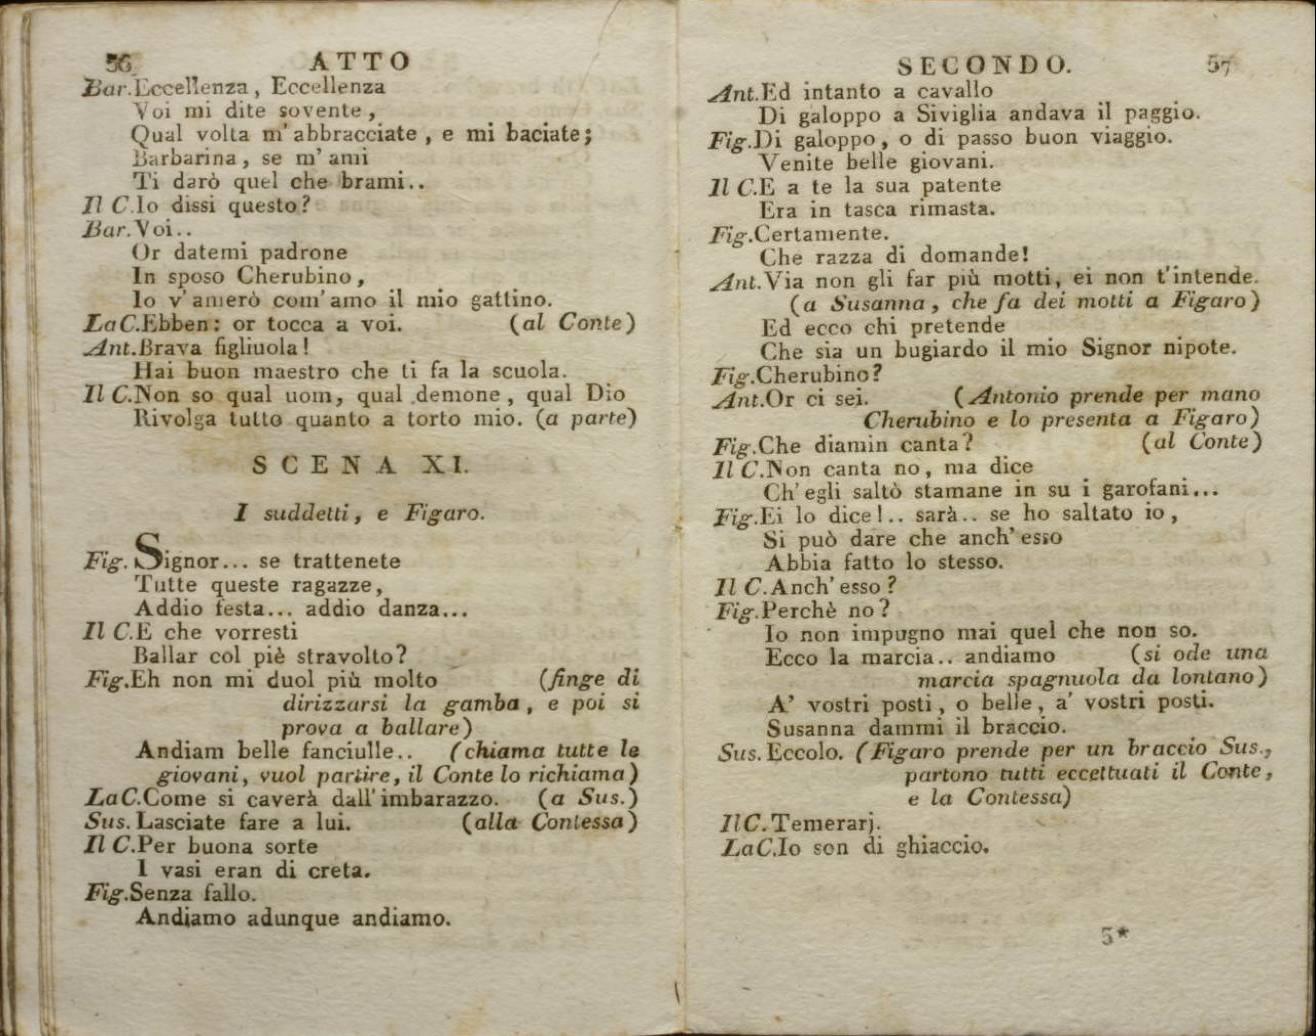 56 ATTO
Bar. Eccellenza, Eccellenza
Voi mi dite sovente,
Qual volta m'abbracciate, e mi baciate;
Barbarina, se m'ami
Ti darò quel che brami..
Il C. Io dissi questo?
Bar. Voi..
Or datemi padrone
In sposo Cherubino,
Io v'amerò com'amo il mio gattino.
La C. Ebben: or tocca a voi. (al Conte)
Ant. Brava figliuola!
Hai buon maestro che ti fa la scuola.
Il C. Non so qual uom, qual demone, qual Dio
Rivolga tutto quanto a torto mio. (a parte)
SCENA XI.
I suddetti, e Figaro.
Fig. Signor... se trattenete
Tutte queste ragazze,
Addio festa... addio danza...
Il C. E che vorresti
Ballar col piè stravolto?
Fig. Eh non mi duol più molto (finge di
dirizzarsi la gamba, e poi si
prova a ballare)
Andiam belle fanciulle.. (chiama tutte le
giovani, vuol partire, il Conte lo richiama)
La C. Come si caverà dall'imbarazzo. (a Sus.)
Sus. Lasciate fare a lui. (alla Contessa)
Il C. Per buona sorte
I vasi eran di creta.
Fig. Senza fallo.
Andiamo adunque andiamo.
SECONDO. 57
Ant. Ed intanto a cavallo
Di galoppo a Siviglia andava il paggio.
Fig. Di galoppo, o di passo buon viaggio.
Venite belle giovani.
Il C. E a te la sua patente
Era in tasca rimasta.
Fig. Certamente.
Che razza di domande!
Ant. Via non gli far più motti, ei non t'intende.
(a Susanna, che fa dei motti a Figaro)
Ed ecco chi pretende
Che sia un bugiardo il mio Signor nipote.
Fig. Cherubino?
Ant. Or ci sei. (Antonio prende per mano
Cherubino e lo presenta a Figaro)
Fig. Che diamin canta? (al Conte)
Il C. Non canta no, ma dice
Ch'egli saltò stamane in su i garofani...
Fig. Ei lo dice!.. sarà.. se ho saltato io,
Si può dare che anch'esso
Abbia fatto lo stesso.
Il C. Anch'esso?
Fig. Perchè no?
Io non impugno mai quel che non so.
Ecco la marcia.. andiamo (si ode una
marcia spagnuola da lontano)
A' vostri posti, o belle, a' vostri posti.
Susanna dammi il braccio.
Sus. Eccolo. (Figaro prende per un braccio Sus.,
partono tutti eccettuati il Conte,
e la Contessa)
Il C. Temerarj.
La C. Io son di ghiaccio.
5*